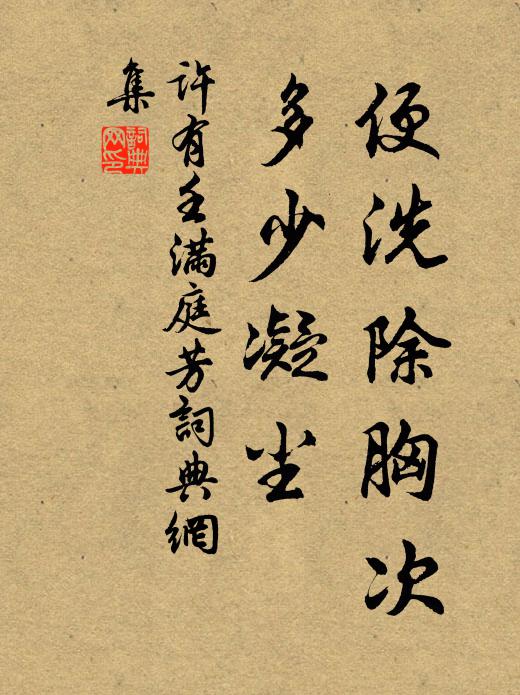 便洗除胸次
多少凝尘
许有壬满庭芳詞典網
集
詞典网印